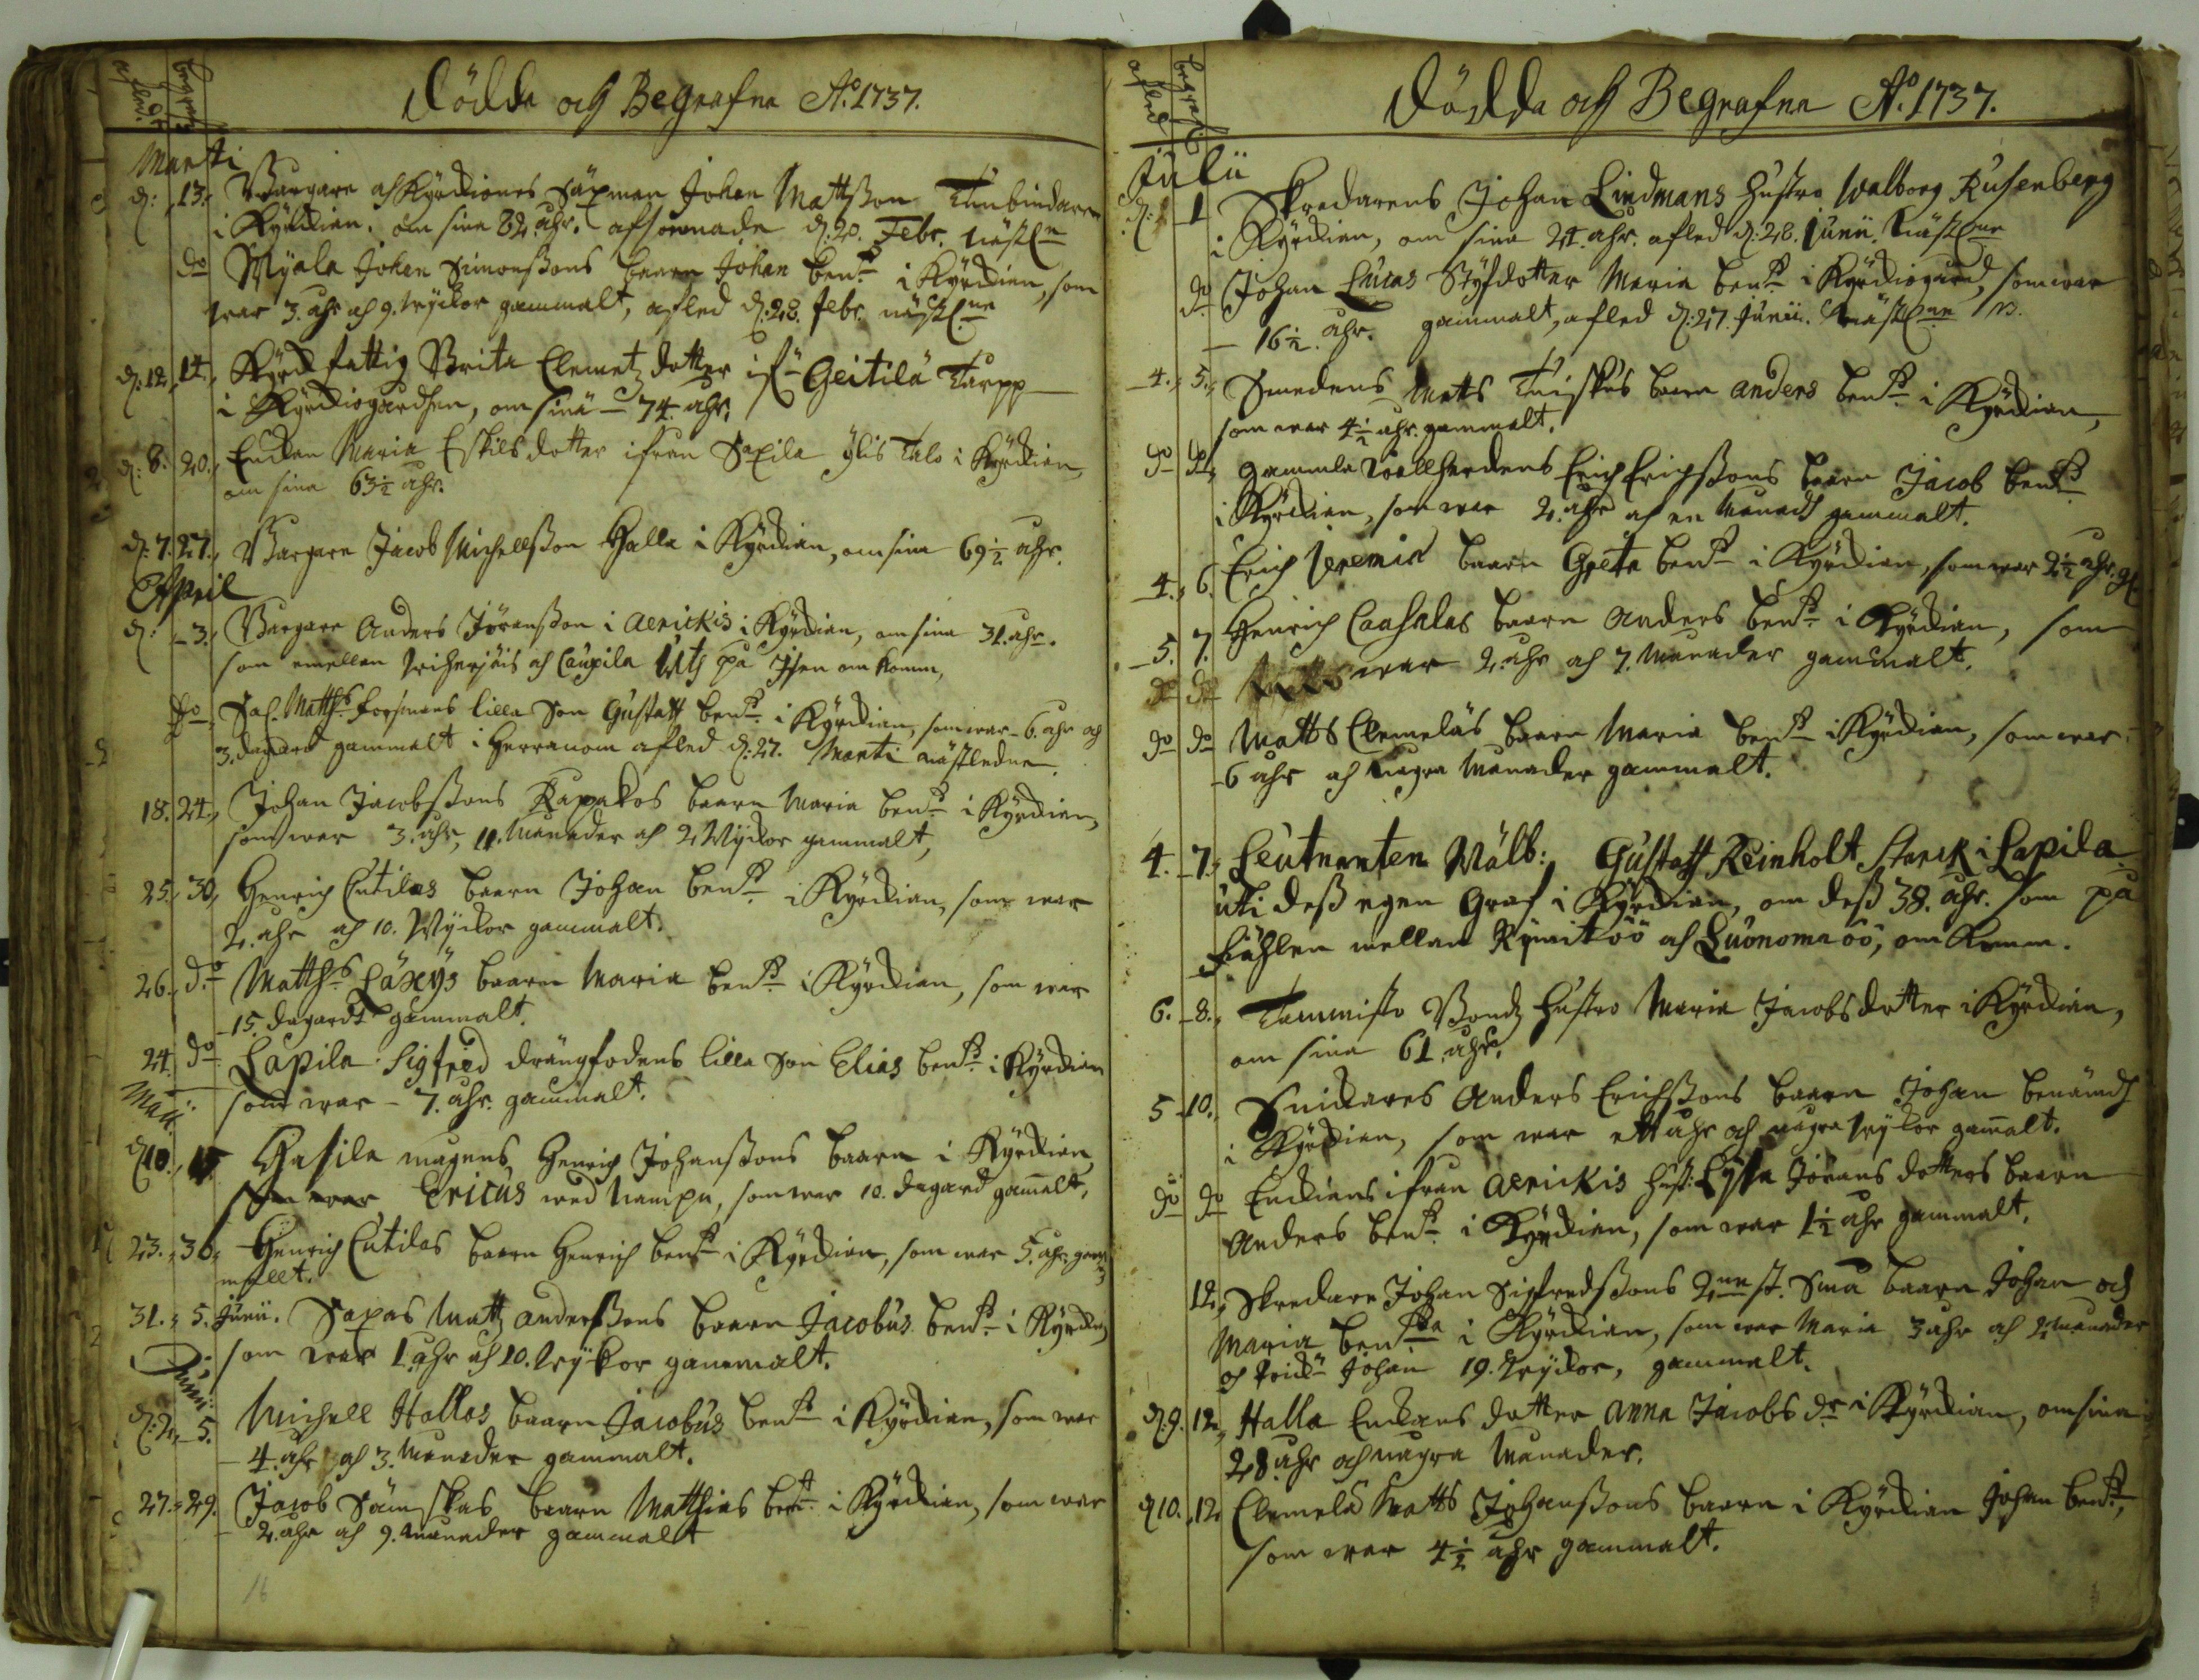 afled.
begrafne
Dödda och Begrafne A:o 1737.
Marti
d: 13. Borgare och Kyrkiones Säxman Johan Mattsson Tunbindare
i Kyrkian. om sina 82 åhr. afsomnade d. 20. Febr. nästl:ne
d:o Myala Johan Simonssons baarn Johan ben:d i Kyrkian, som
war 3. åhr och 9. wyckor gammalt, afled d: 28. febr. nästl:ne
d: 12. 14. Kyrk fattig Brita Clemetz dotter if:n Geitilä Torpp
i Kyrkiogårdhen, om sina 74 åhr.
d: 8. 20. Enkan Maria Eskilsdotter ifrån Saxila Ylis Talo i Kyrkian,
om sina 63½ åhr.
d: 7. 27. Borgare Jacob Michellsson Halla i Kyrkian, om sina 69½ åhr.
April
d: 3. Borgare Anders Jöransson i Aerickis i Kyrkian, om sina 31. åhr.
som emellan och Caupila uth på Isen om komm,
d:o Sal. Matth:s Forsmans lilla Son Gustaff ben:d i Kyrkian, som war 6. åhr och
3. dagard gammalt i Herranom afled d: 27. Marti nästledne.
18. 24. Johan Jacobssons Rapakos baarn Maria ben:d i Kyrkian,
som war 3. åhr, 11. Månader och 2 Wyckor gammalt,
25. 30. Henrich Cutilas baarn Johan ben:d i Kyrkian, som war
2. åhr och 10. Wyckor gammalt.
26. d:o Matth:s Läxys baarn Maria ben:d i Kyrkian, som war
15. dagards gammalt.
24. d:o Lapila Sigfred drängfodens lilla Son Elias ben:d i Kyrkian
som war 7. åhr. gammalt.
Maii
d 10. 15 Hasila mågens Henrich Johanssons baarn i Kyrkian,
som war Ericus wed nampn, som war 10. dagard gamalt,
23. 30. Henrich Cutilas baarn Henrich ben:d i Kyrkian, som war 5. åhr. gam
mallt.
31. 5. Junii. Saxas Matz Anderssons baarn Jacobus ben:d i Kyrkian
som war 1. åhr och 10. wyckor gammalt.
Junii
d: 2. 5. Michell Hallas baarn Jacobus ben:d i Kyrkian, som war
4. åhr och 3. Månader gammalt.
27. 29. Jacob Sämskas baarn Matthias ben:d i Kyrkian, som war
2. åhr och 9. månader gammalt
16
afled
begrafne
Dödda och Begrafne A:o 1737.
Julii
d: 1 Skredarens Johan Lindmans hustro Walborg Rusenberg
i Kyrkian, om sina 24. åhr. afled d: 28. Junii. Nästl:ne
d:o Johan Lucas Styfdotter Maria ben:d i Kyrkiogård, som war
16½ åhr. gammalt, afled d: 27. Junii. Nästl:ne
4. 5. Smedens Matts Tuiskus baarn Anders ben:d i Kyrkian,
som war 4½ åhr. gammalt.
d:o d:o gammla Wallherdens Erich Erichssons baarn Jacob ben:d
i Kyrkian, som war 2. åhr och en månadh gammalt.
4. 6. Erich Jeremiæ baarn Greta ben:d i Kyrkian, som war 2½ åhr. g
5. 7. Henrich Caahalas baarn Anders ben:d i Kyrkian, som
d:o d:o war 2. åhr och 7. Månader gammalt.
d:o d:o Matts Clemeläs baarn Maria ben:d i Kyrkian, som war
6 åhr och några Månader gammalt.
4. 7. Leutnanten Wälb: Gustaff Reinholt Starck i Lapila
uti dess egen Graf i Kyrkian, om dess 38. åhr. som på
fiählen mellan Rymitöö och Luonomaöö, om komm.
6. 8. Tammisto Bondz hustro Maria Jacobsdotter i Kyrkian,
om sina 61. åhr.
5 10. Snickares Anders Erichssons baarn Johan benämd
i Kyrkian, som war ett åhr och några wyckor gamalt.
d:o d:o Enkians ifrån Aerickis hust: Lysa Jörans dotters baarn
Anders ben:d i Kyrkian, som war 1½ åhr gammalt,
12. Skredare Johan Sigfredssons 2:ne st. Små baarn Johan och
Maria ben:da i Kyrkian, som war Maria 3 åhr och 2 månader
och Johan 19. wyckor, gammalt.
d 9. 12. Halla Enckans dotter Anna Jacobs d:r i Kyrkian, om sina
28 åhr och några Månader.
d 10. 12 Clemelä Matts Johanssons baarn i Kyrkian Johan ben:d,
som war 4½ åhr gammalt.